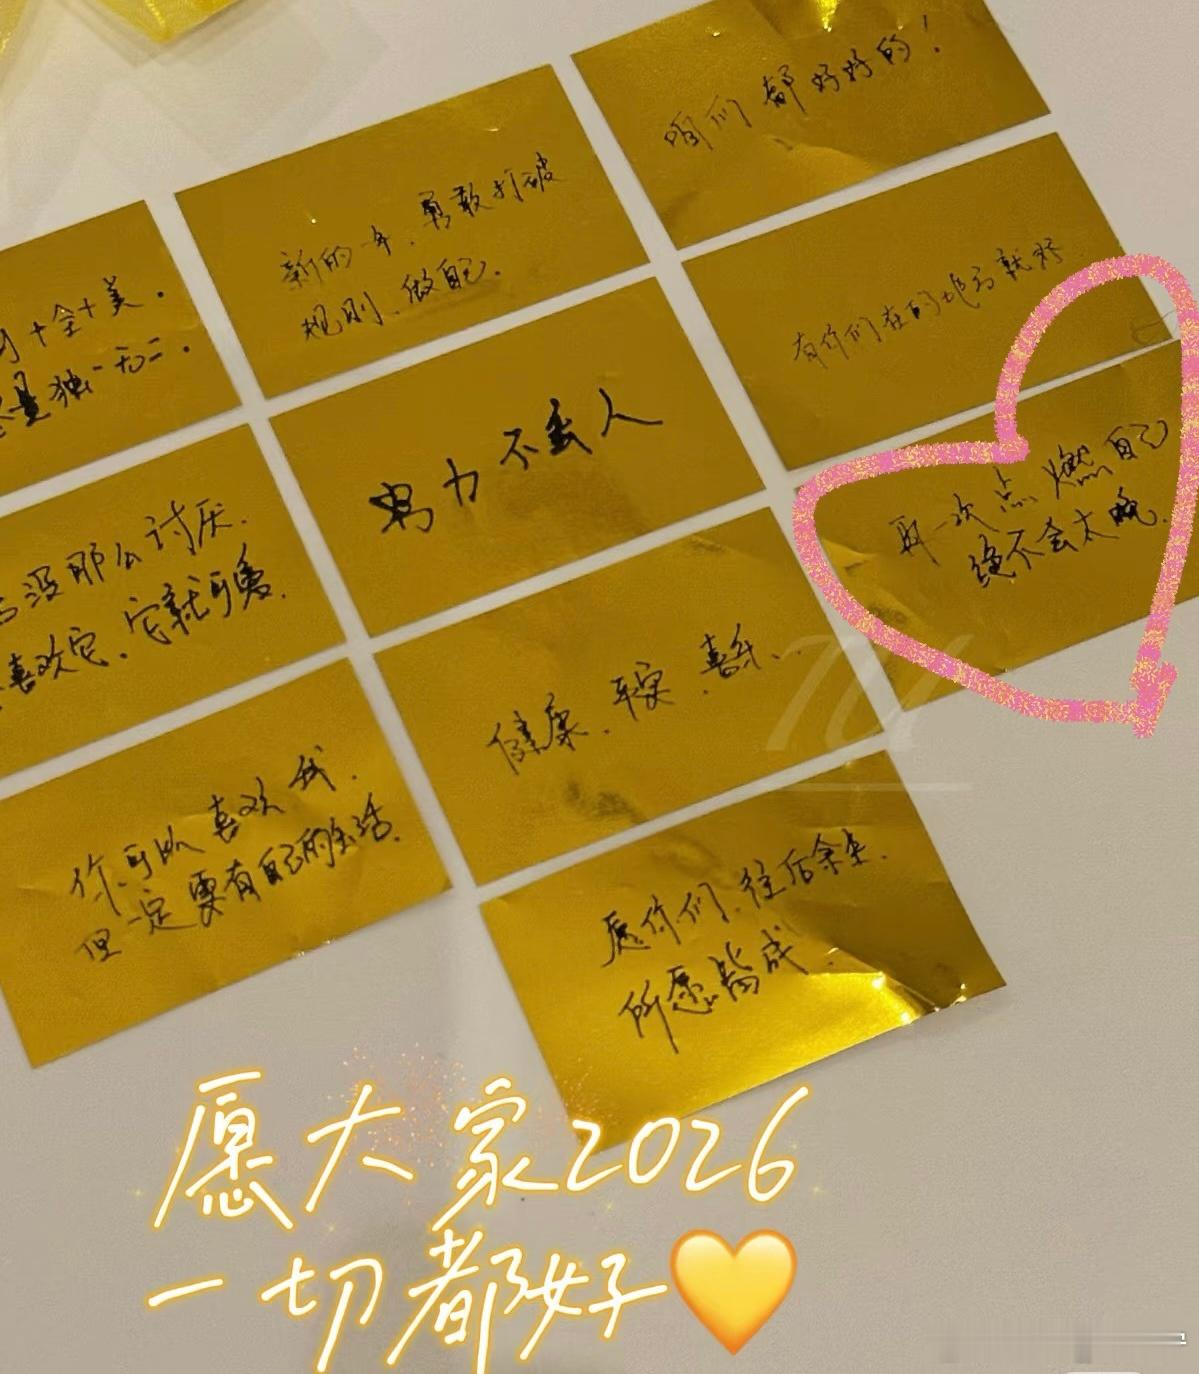 咱们都好好的!
新的一年,勇敢打破
规则、做自己.
有你们在的地方就好
十全十美.
尽量独一无二.
努力不丢人
再一次点燃自己
绝不会太晚.
没那么讨厌.
喜欢它.它就可爱.
健康、平安、喜乐、
你可以喜欢我.
但一定要有自己的生活.
愿你们、往后余生.
所愿皆成.
愿大家2026
一切都好